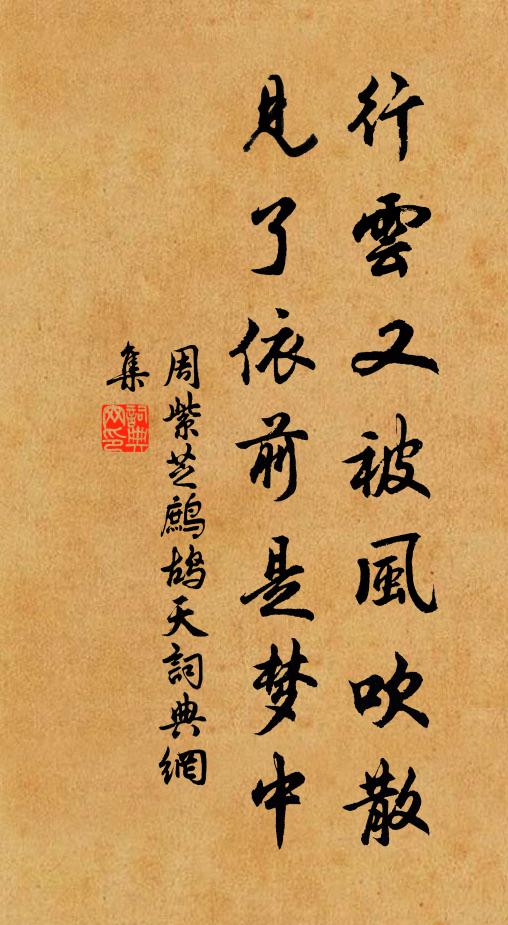 行雲又被風吹散
見了依前是梦中
周紫芝鷓鴣天詞典網
集
詞典
网印